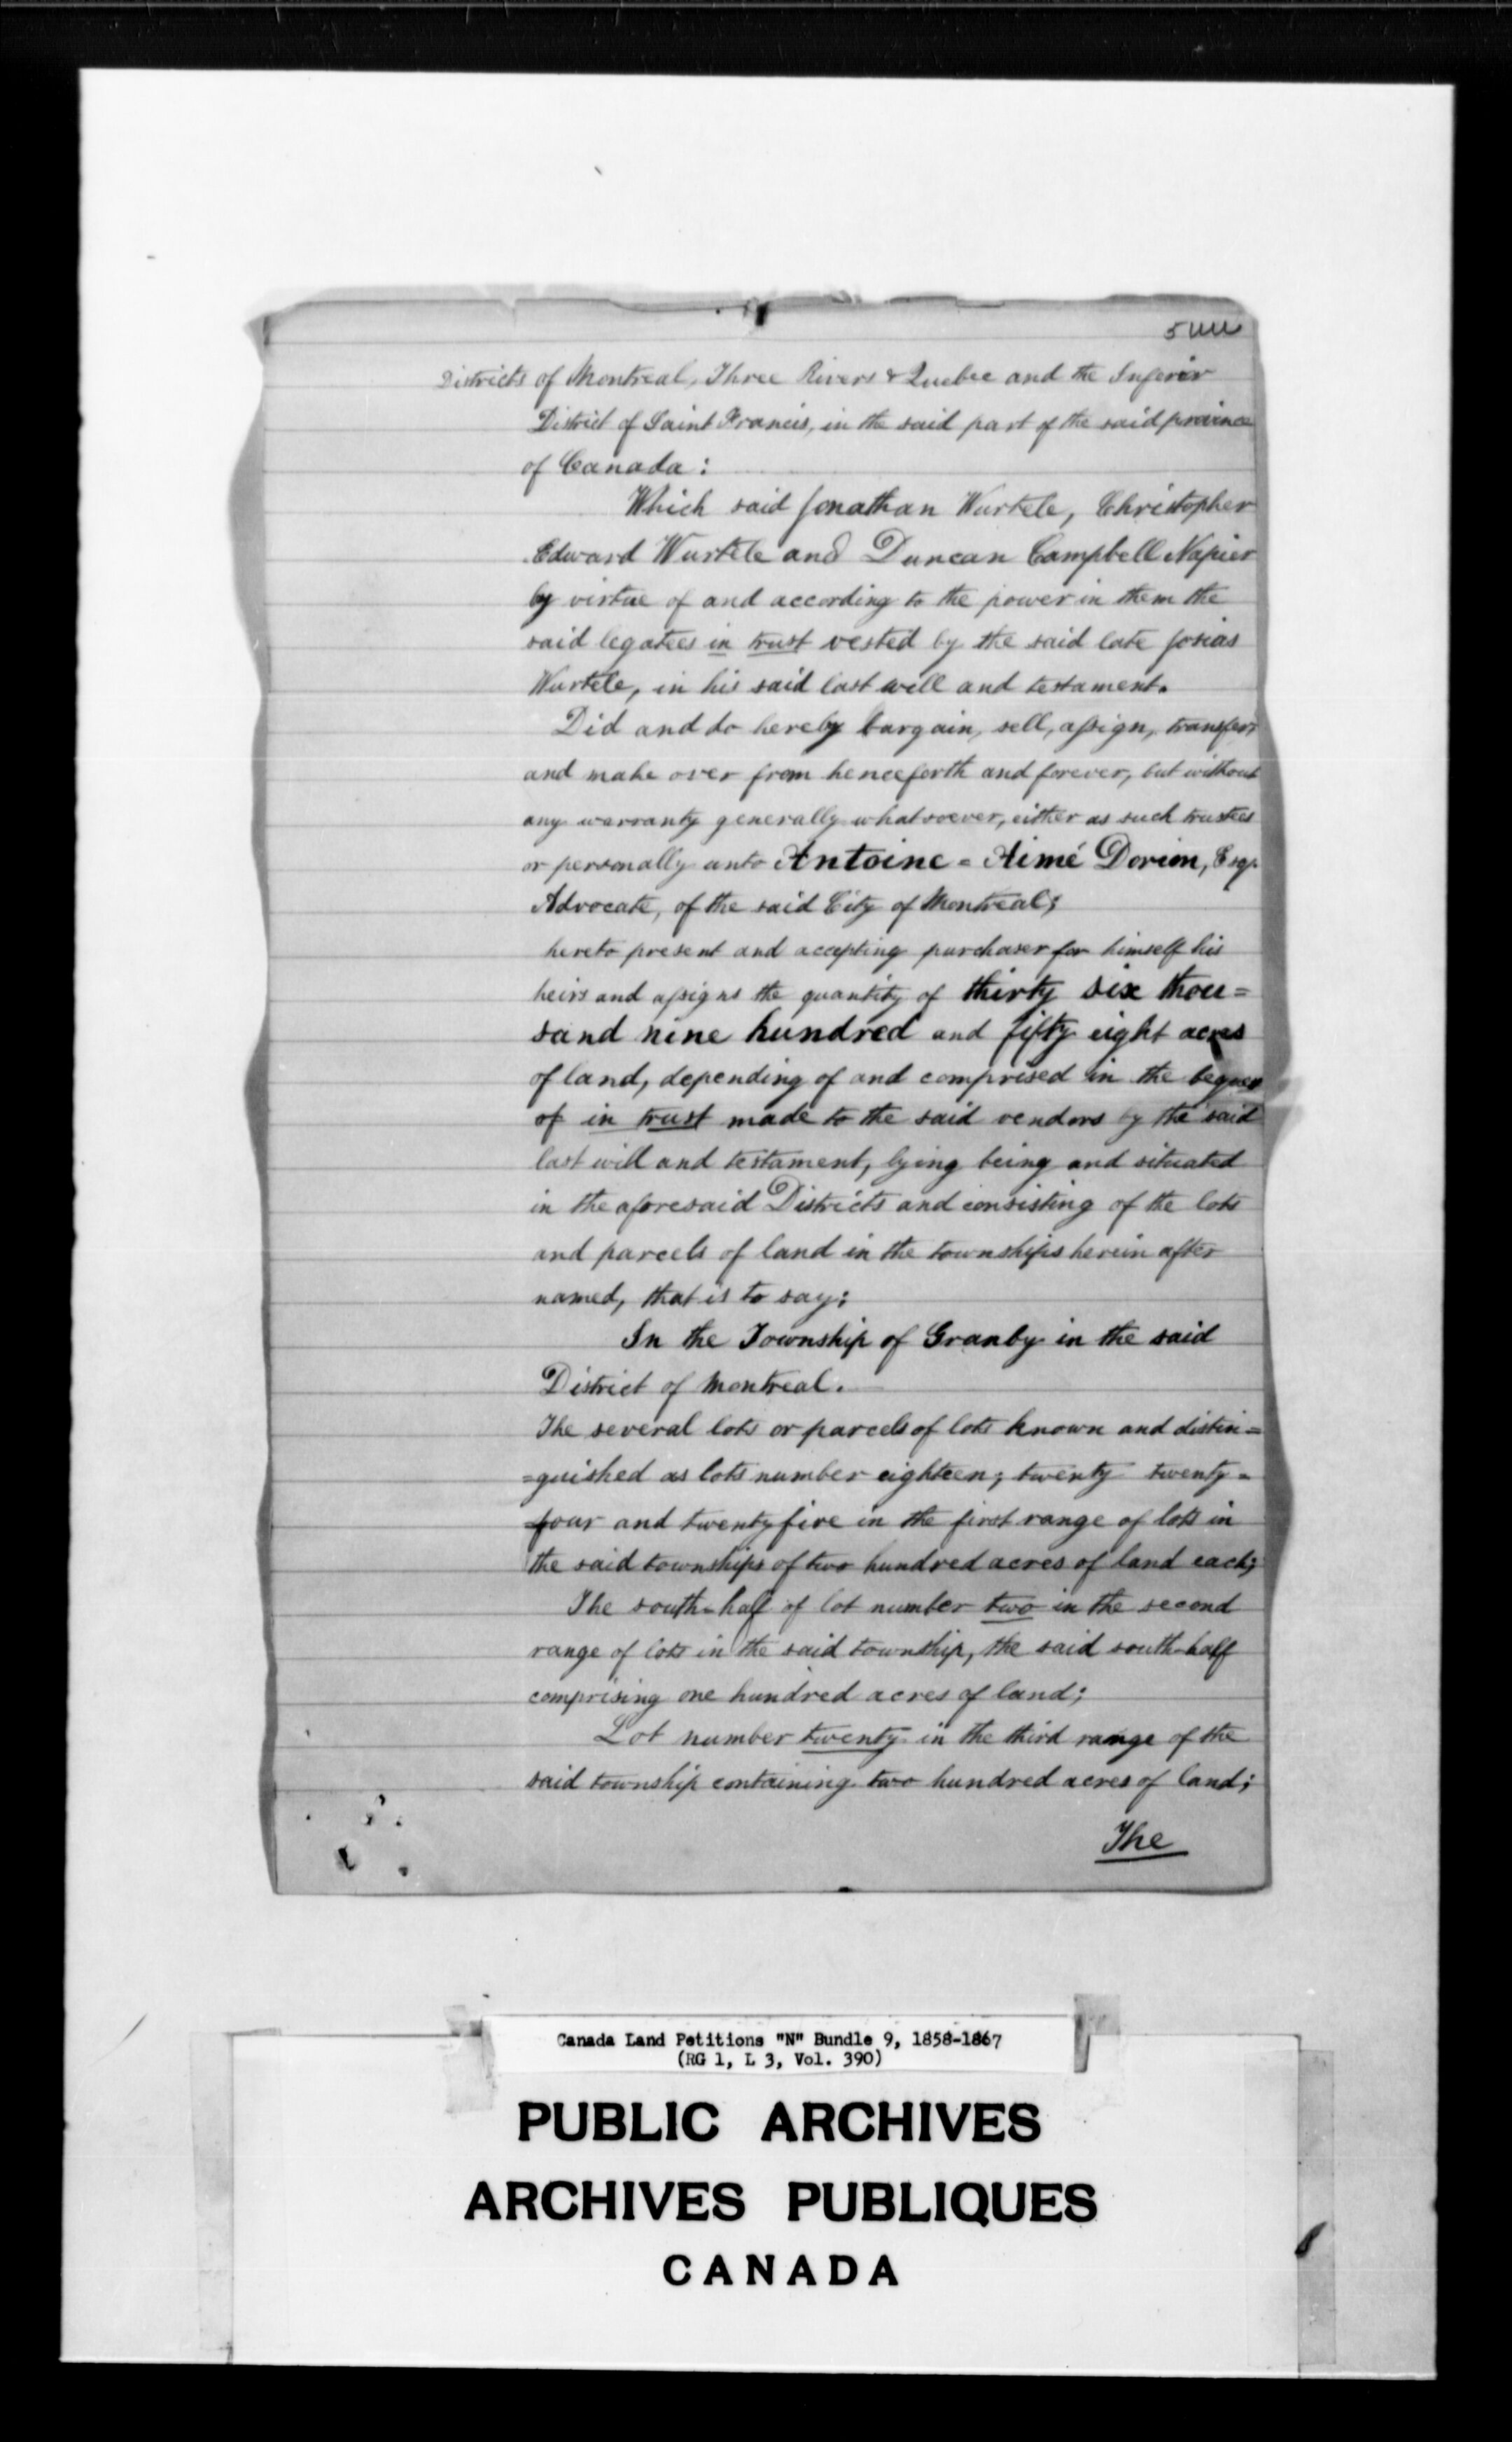 Districts of Montreal, Three Rivers & Quebec and the Inferior
District of Saint Francis, in the said part of the said province
of Canada:
Which said Jonathan Wurtele, Christopher
Edward Wurtele and Duncan Campbell Napier
by virtue of and according to the power in them the
said legatees in trust vested by the said late Josias
Wurtele, in his said last will and testament.
Did and do hereby bargain, sell, assign, transfer,
and make over from henceforth and forever, but without
any warranty generally whatsoever, either as such trustees
or personally unto Antoine=Aimé Dorion, Esqr.
Advocate, of the said City of Montreal;
hereto present and accepting purchaser for himself his
heirs and assigns the quantity of thirty six thou=
sand nine hundred and fifty eight acres
of land, depending of and comprised in the
of in trust made to the said vendors by the said
last will and testament, lying being and situated
in the aforesaid Districts and consisting of the lots
and parcels of land in the townships herein after
named, that is to say:
In the Township of Granby in the said
District of Montreal.
The several lots or parcels of lots known and distin=
=guished as lots number eighteen; twenty twenty=
four and twenty five in the first range of lots in
the said townships of two hundred acres of land each;
The south-half of lot number two in the second
range of lots in the said township, the said south-half
comprising one hundred acres of land;
Lot number twenty in the third range of the
said township containing two hundred acres of land;
The
Canada Land Petitions "N" Bundle 9, 1858-1867
(RG 1, L 3, Vol. 390)
PUBLIC ARCHIVES
ARCHIVES PUBLIQUES
CANADA